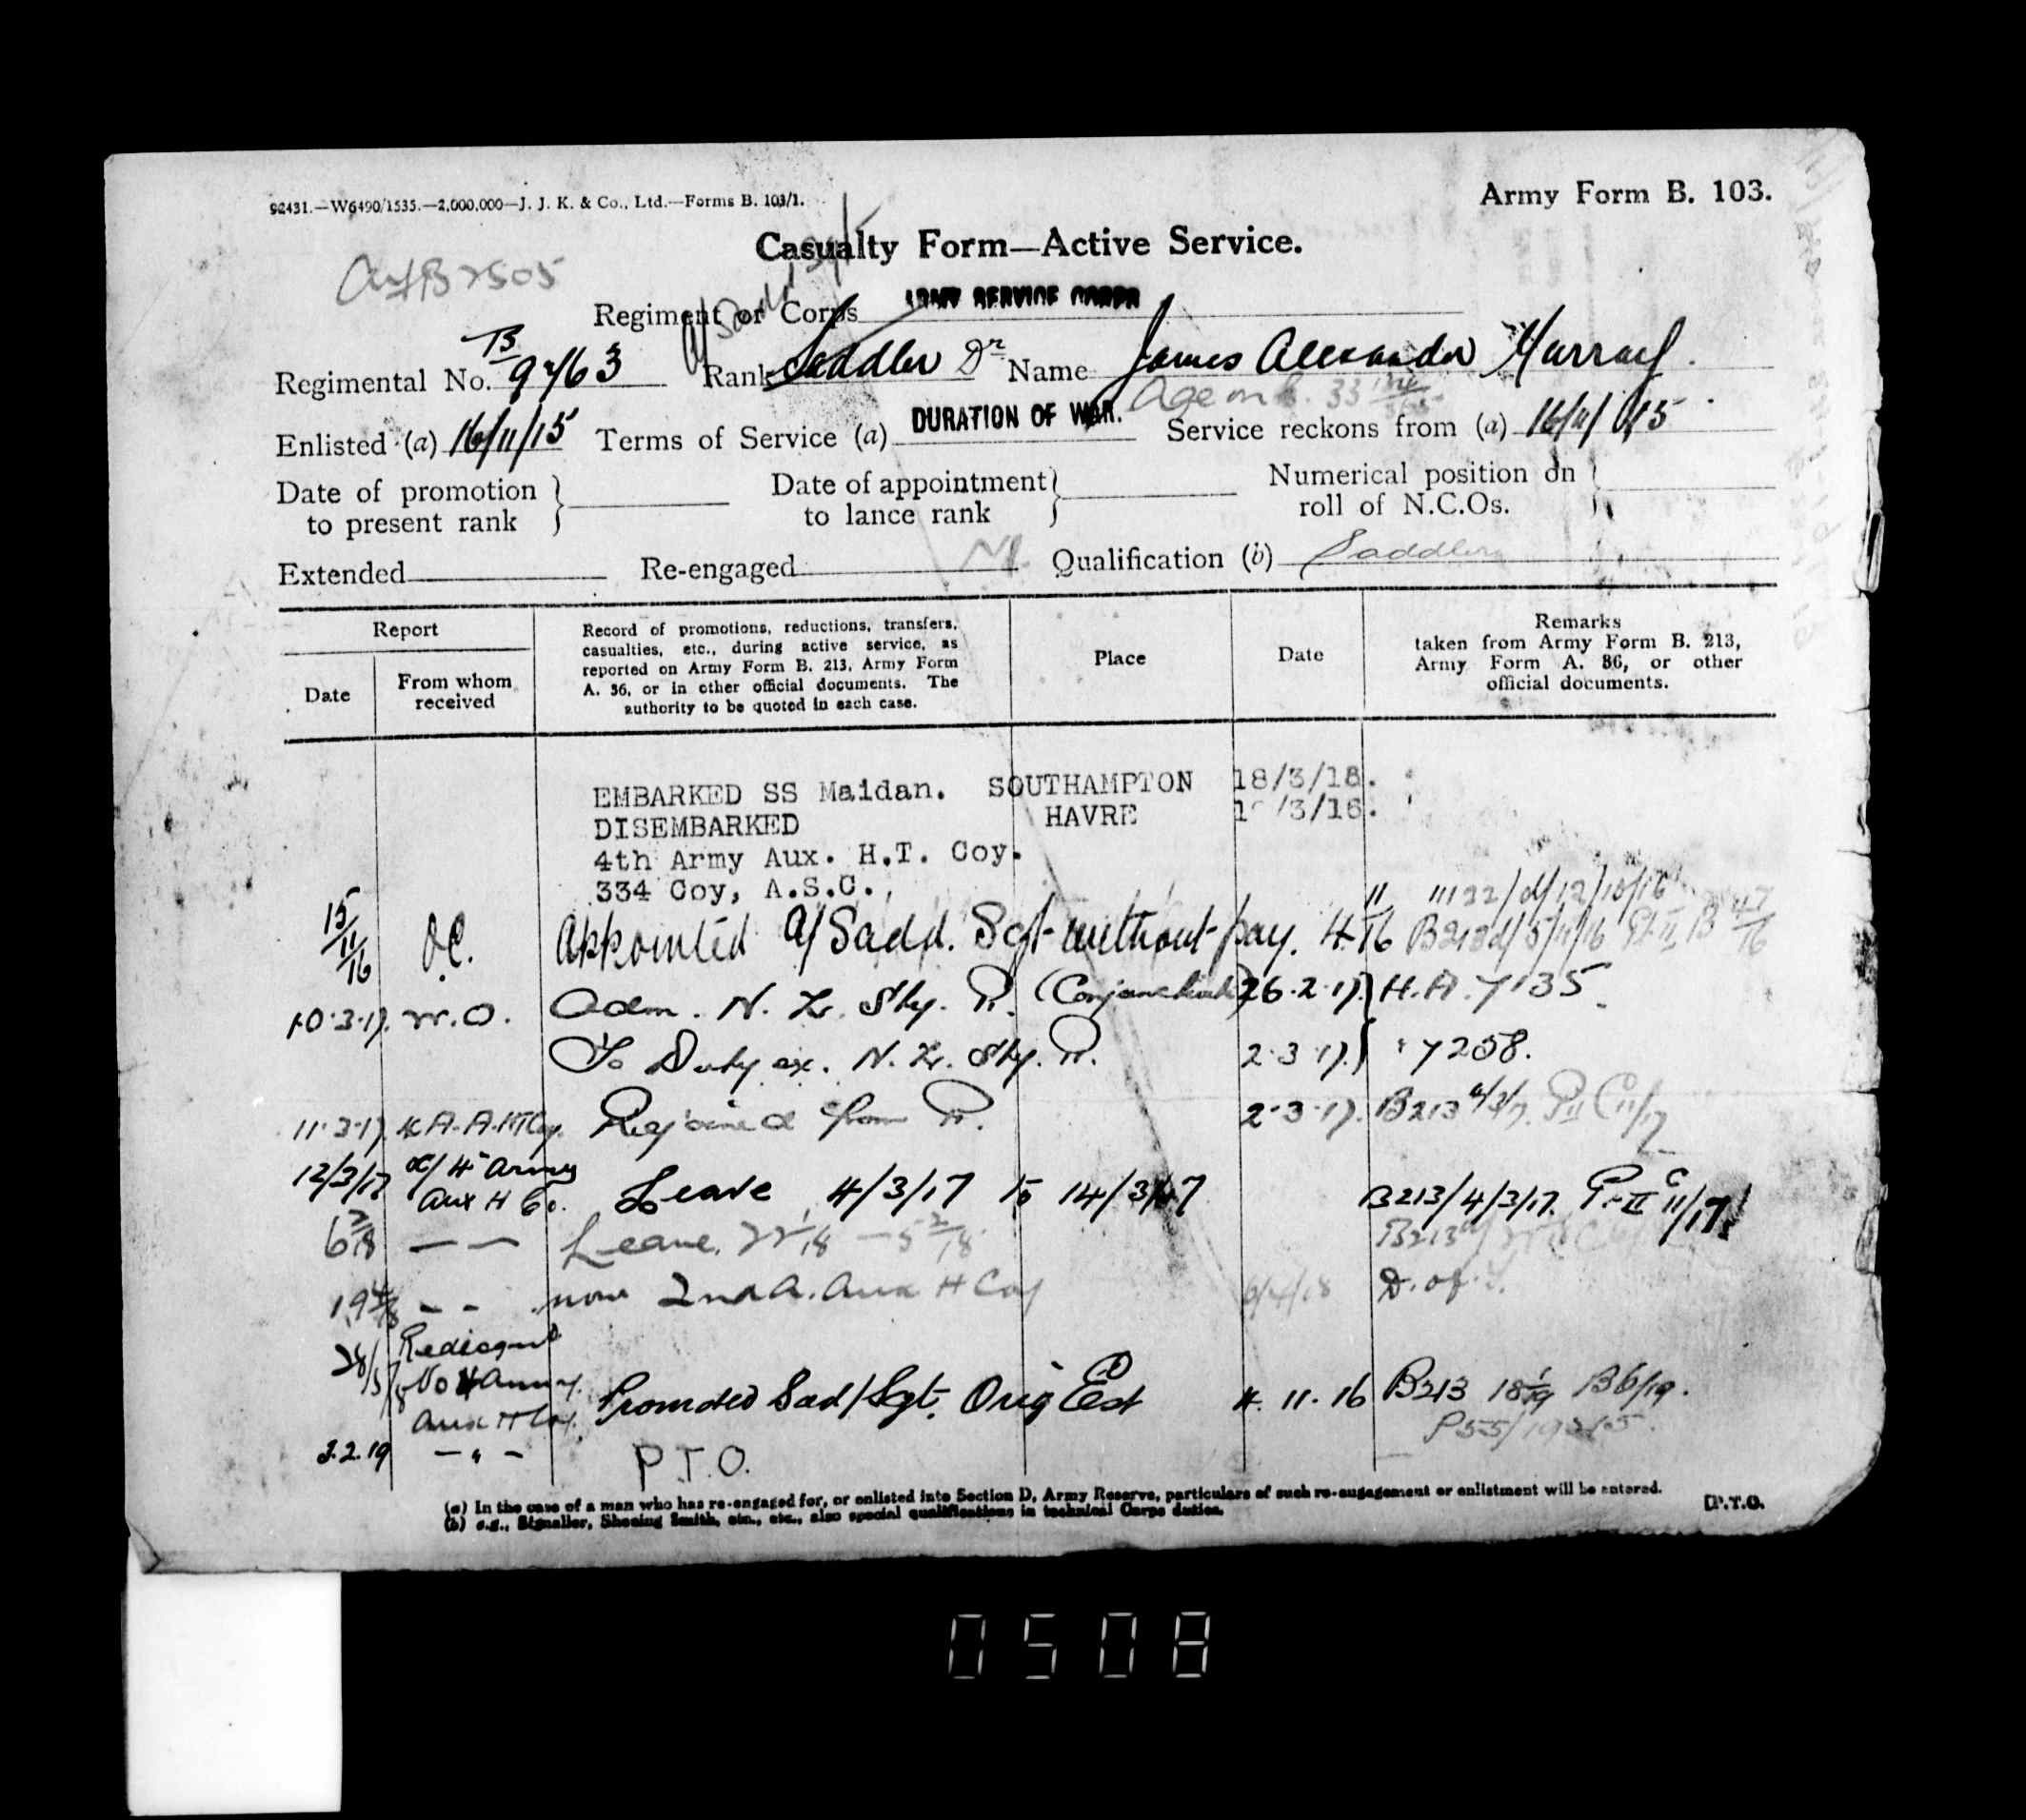 92431.—W6490/1535.—2,000,000—J. J. K. & Co., Ltd.—Forms B. 103/1.
Army Form B. 103.
Casualty Form—Active Service.
B2505
Regiment or Corps ARMY SERVICE CORPS
Regimental No. T3/9763 Rank Saddler Dr Name James Alexander Murray.
Age on 33
Enlisted (a) 16/11/15 Terms of Service (a) DURATION OF WAR. Service reckons from (a) 16/11/15
Date of promotion to present rank } Date of appointment to lance rank } Numerical position on roll of N.C.Os. }
Extended Re-engaged Qualification (b) Saddler
Report
Date
From whom received
Record of promotions, reductions, transfers,
casualties, etc., during active service, as
reported on Army Form B. 213, Army Form
A. 36, or in other official documents. The
authority to be quoted in each case.
Place
Date
Remarks
taken from Army Form B. 213,
Army Form A. 36, or other
official documents.
EMBARKED SS Maidan. SOUTHAMPTON 18/3/18.
DISEMBARKED HAVRE /3/16.
4th Army Aux. H.T. Coy.
334 Coy, A.S.C.,
15/11/16 O.C. Appointed A/Sadd. Sgt without pay. 4 11/16
10.3.17. Adm. N. Z. Sty. (Conjunctivitis) 26.2.17. H.A. 7135
To Duty ex. N. Z. Sty. 2.3.17. " 7258.
11.3.17. Rejoined from 2.3.17. B213
12/3/17 4th Army Aux H Co. Leave 4/3/17 to 14/3/17 B213/4/3/17. Pt II C 11/17
6 2/18 — — Leave 22 1/18 — 5 2/18
19 4/18 — — now 2nd A. Aux H Coy 6/4/18 D. of
28/5/18 Redesignd No 4 Army Aux H Coy.
Promoted Sad/Sgt. Orig Est 4.11.16 B213 18 1/19 B6/19.
2.2.19 — " — P.T.O.
(a) In the case of a man who has re-engaged for, or enlisted into Section D, Army Reserve, particulars of such re-engagement or enlistment will be entered.
(b) e.g., Signaller, Shoeing Smith, etc., etc., also special qualifications in technical Corps duties.
[P.T.O.
0508